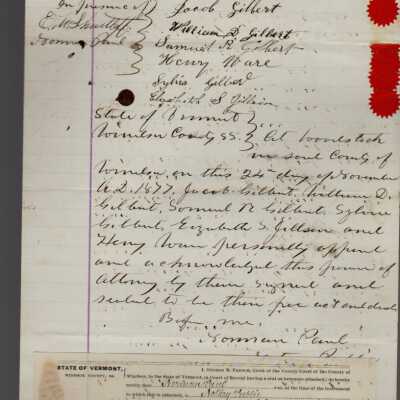 In presence of } Jacob Gilbert
William D. Gilbert
Norman Paul } Samuel R Gilbert
Henry Ware
Sylvia Gilbert
Elizabeth S Gillson
State of Vermont }
Windsor County SS. } At Woodstock
in said County of
Windsor, on this 24th day of November
A.D. 1877, Jacob Gilbert, William D.
Gilbert, Samuel R Gilbert, Sylvia
Gilbert, Elizabeth S. Gillson and
Henry Ware personally appeared
and acknowledged this power of
Attorny by them signed and
sealed to be their free act and deed
Before me.
Norman Paul
STATE OF VERMONT,
WINDSOR COUNTY, SS.
Clerk of the County Court of the County of
Windsor, in the State of Vermont, (a Court of Record having a seal as hereunto attached,) do hereby
certify that Norman Paul was, at the time of the instrument
to which this is attached, a Notary Public